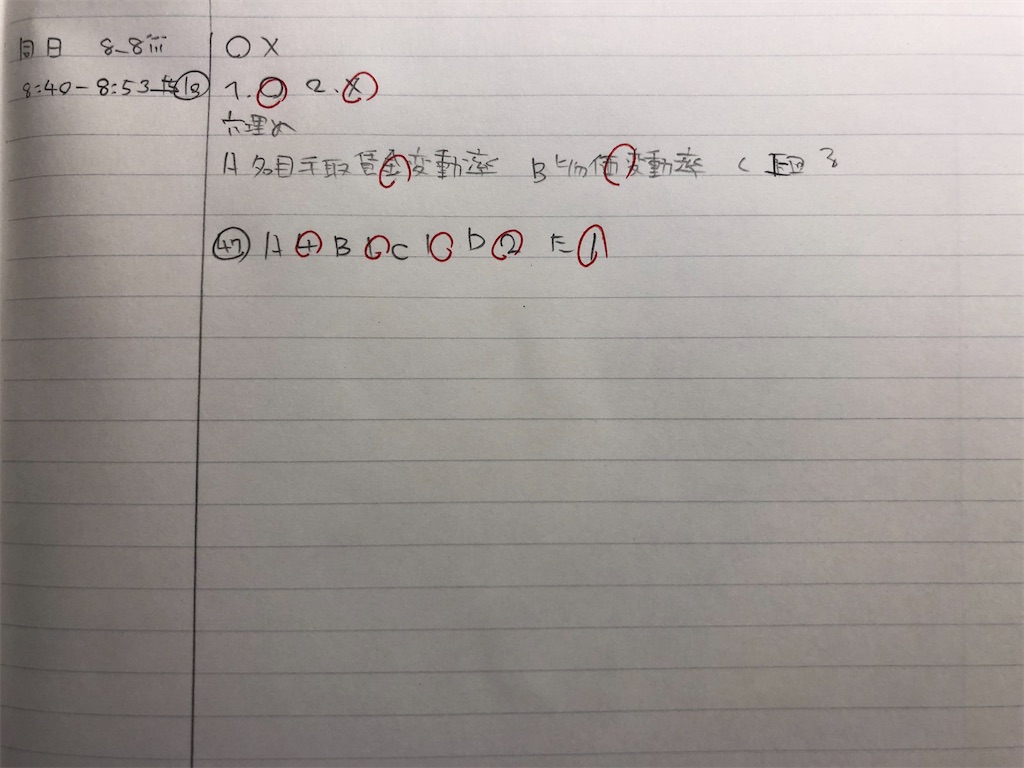 同日 8-8ⅲ ○×
8:40-8:53 13 1.○ 2.×
穴埋め
A 名目手取賃金変動率 B 物価変動率 C
㊼ A 4 B C D 2 E 1